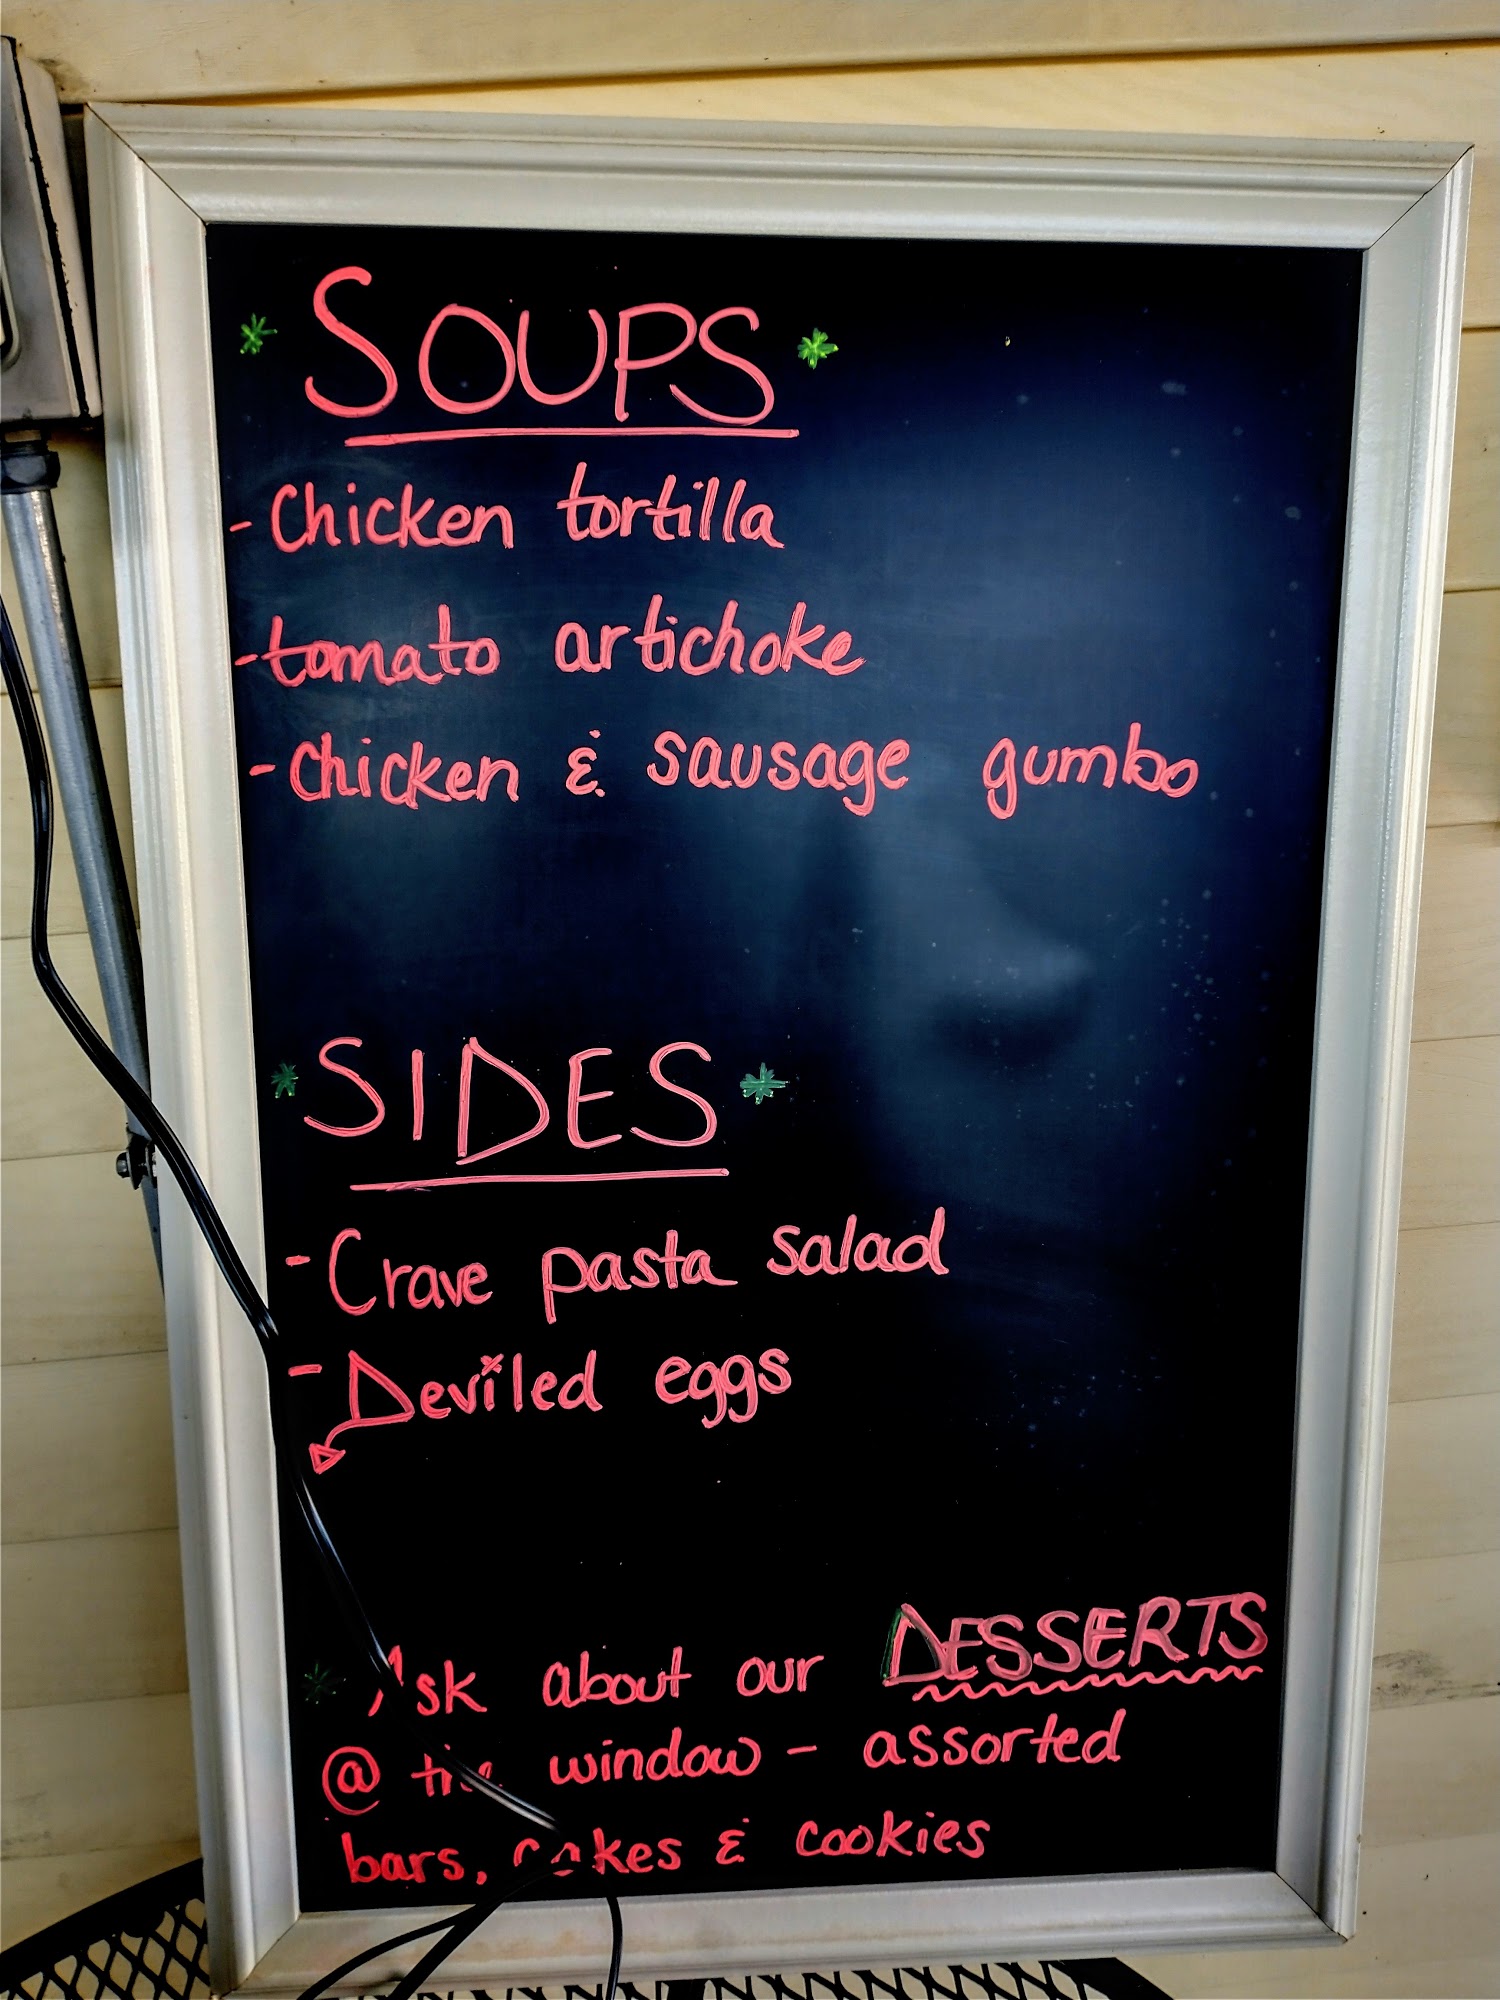 SOUPS
- Chicken tortilla
- tomato artichoke
- chicken & sausage gumbo
SIDES
- Crave pasta salad
- Deviled eggs
Ask about our DESSERTS
@ the window - assorted
bars, cakes & cookies